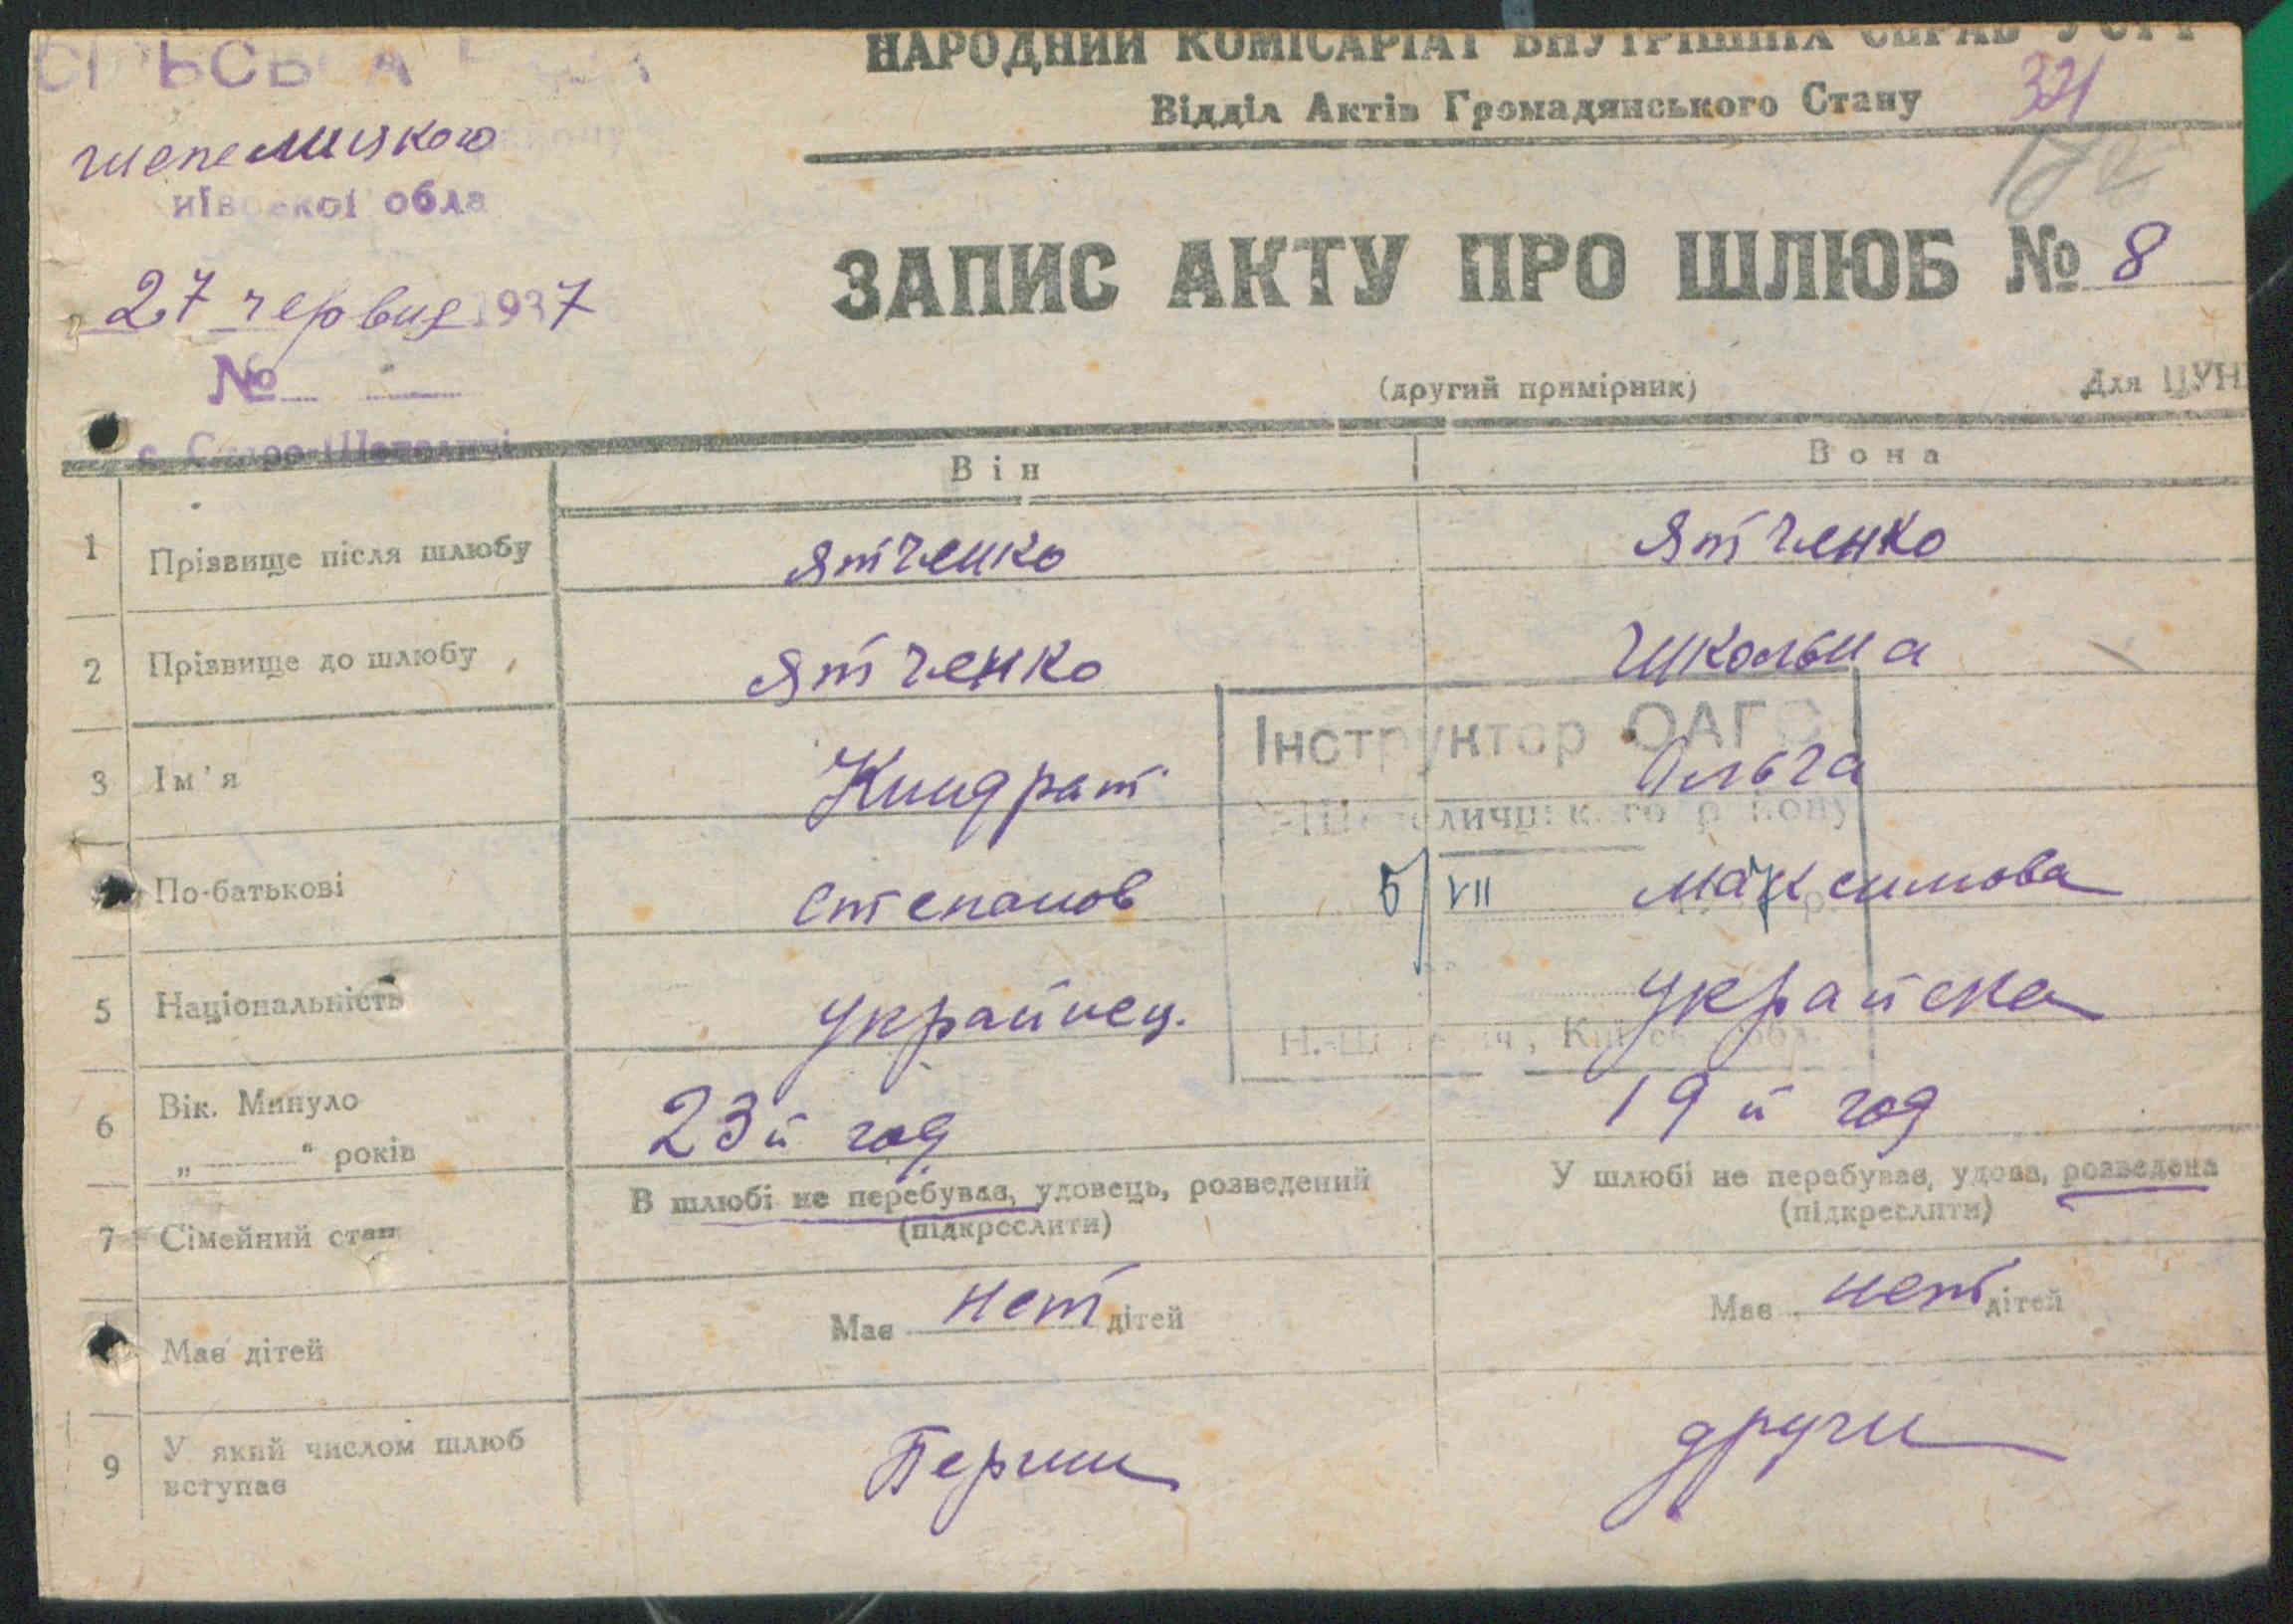 СІЛЬСЬКА РАДА
НАРОДНИЙ КОМІСАРІАТ ВНУТРІШНІХ СПРАВ УСРР
Відділ Актів Громадянського Стану
321
шепелицкого
иївської обла
ЗАПИС АКТУ ПРО ШЛЮБ № 8
27 червня 1937
№
(другий примірник) Для ЦУН
с. Старо-Шепеличі
Він Вона
1 Прізвище після шлюбу Ятченко Ятченко
2 Прізвище до шлюбу Ятченко Школьна
Інструктор ОАГС
3 Ім'я Киндрат Ольга
-Шепеличцького району
4 По-батькові Степанов 5/VII Максимова
5 Національність Украйнец. Украйска
Н.-Шепеличі, Київськ. обл.
6 Вік. Минуло 23й год 19й год
„ “ років
7 Сімейний стан В шлюбі не перебуває, удовець, розведений У шлюбі не перебуває, удова, розведена
(підкреслити) (підкреслити)
Має дітей Має нет дітей Має нет дітей
9 У який числом шлюб вступає Перши други